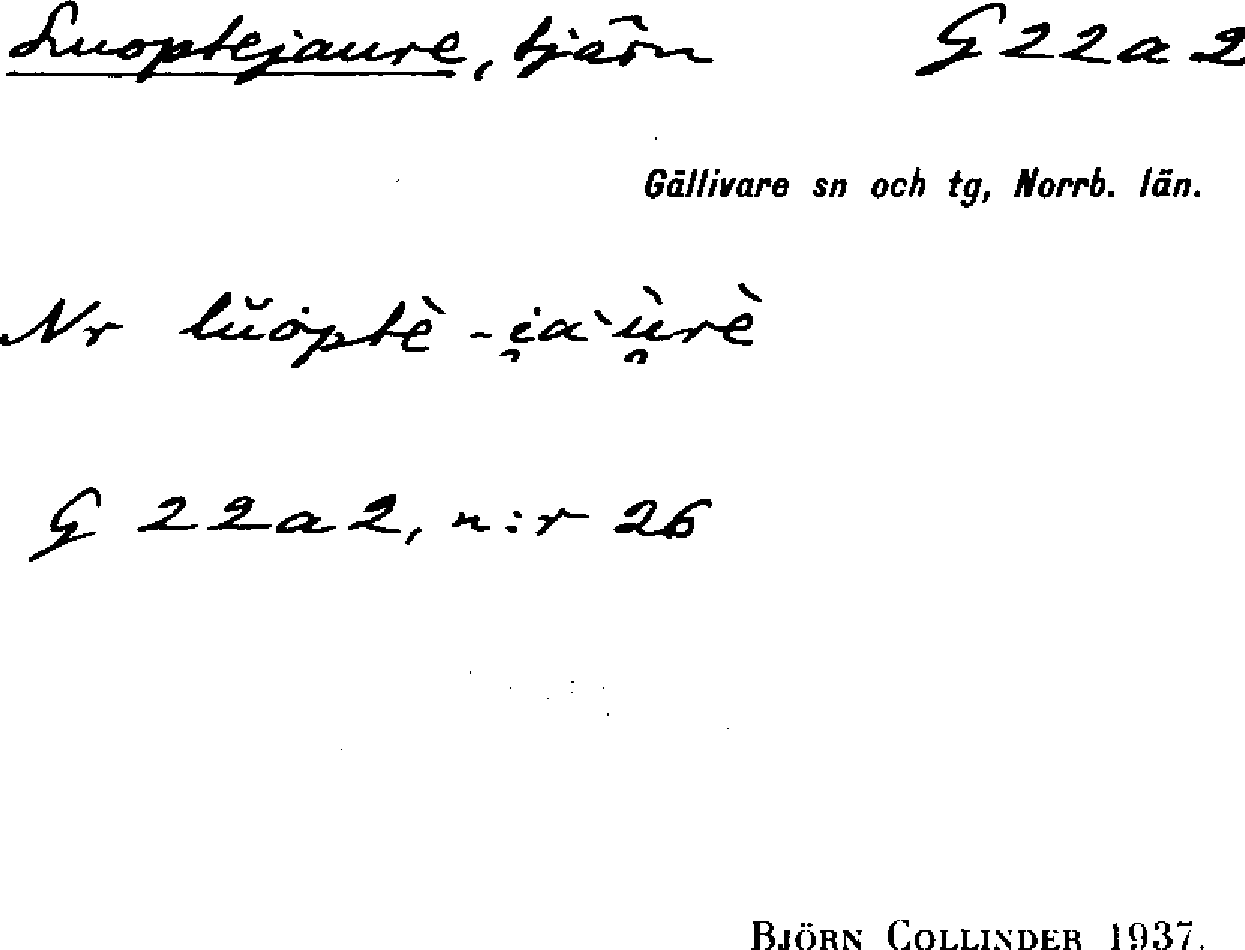 Luoptejaure, tjärn G22a2
Gällivare sn och tg, Norrb. län.
Nr lŭȯptè - i̯a`ù̯rè
G 22a2, n:r 26
BJÖRN COLLINDER 1937.